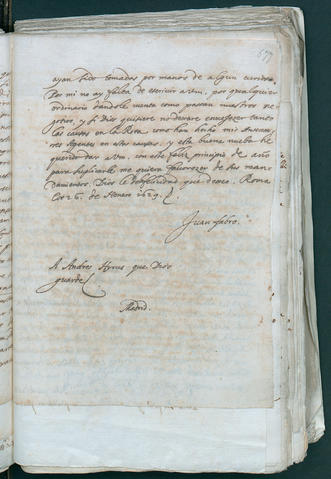 677
ayan sido tomadas por manos de algun curioso.
Por mi no ay falta de escriuir a Vm, por qualquier
ordinario dandole cuenta como passan nuestros ne
gocios, y si Dios quisiere no devare tanto
las causas en la Rota como han hecho mis Anteces
sores Agentes en estas causas, y esta buena nueba he
querido dar a Vm, con este feliz principio de año
para suplicarle me quiera fauorezer de sus man
damientos. Dios le de felicidad que deseo. Roma
a 26. de Henero 1629.
Juan fabro.
A Andres que Dios
guarde
Madrid.